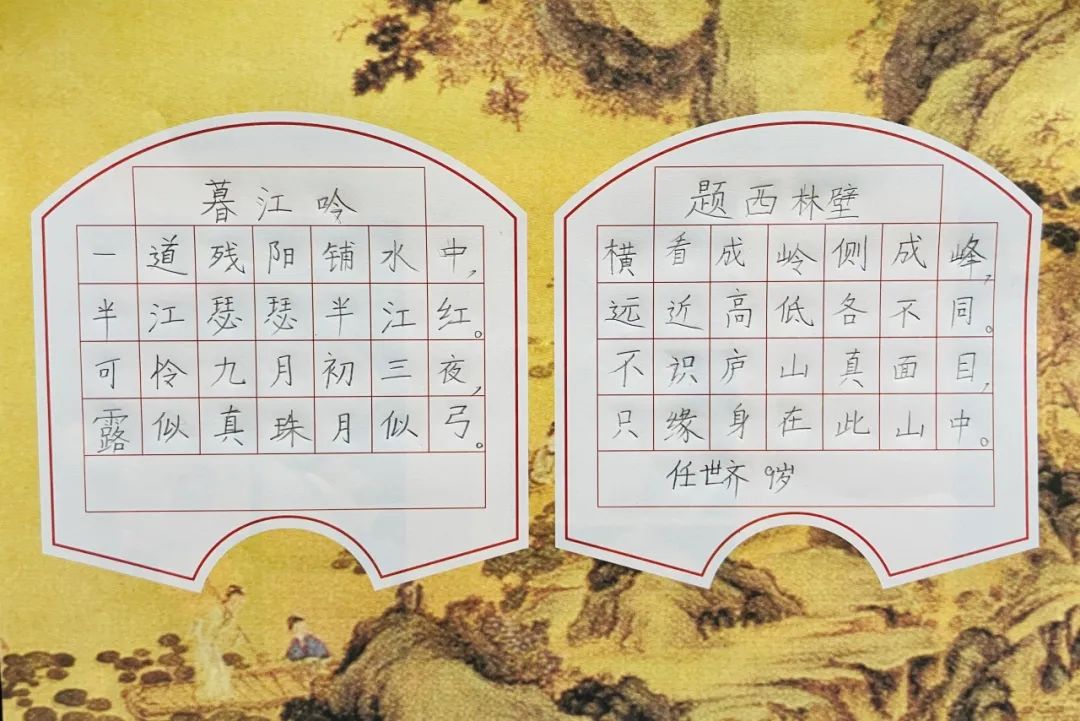 暮江吟
一道残阳铺水中,
半江瑟瑟半江红。
可怜九月初三夜,
露似真珠月似弓。
题西林壁
横看成岭侧成峰,
远近高低各不同。
不识庐山真面目,
只缘身在此山中。
任世齐 9岁